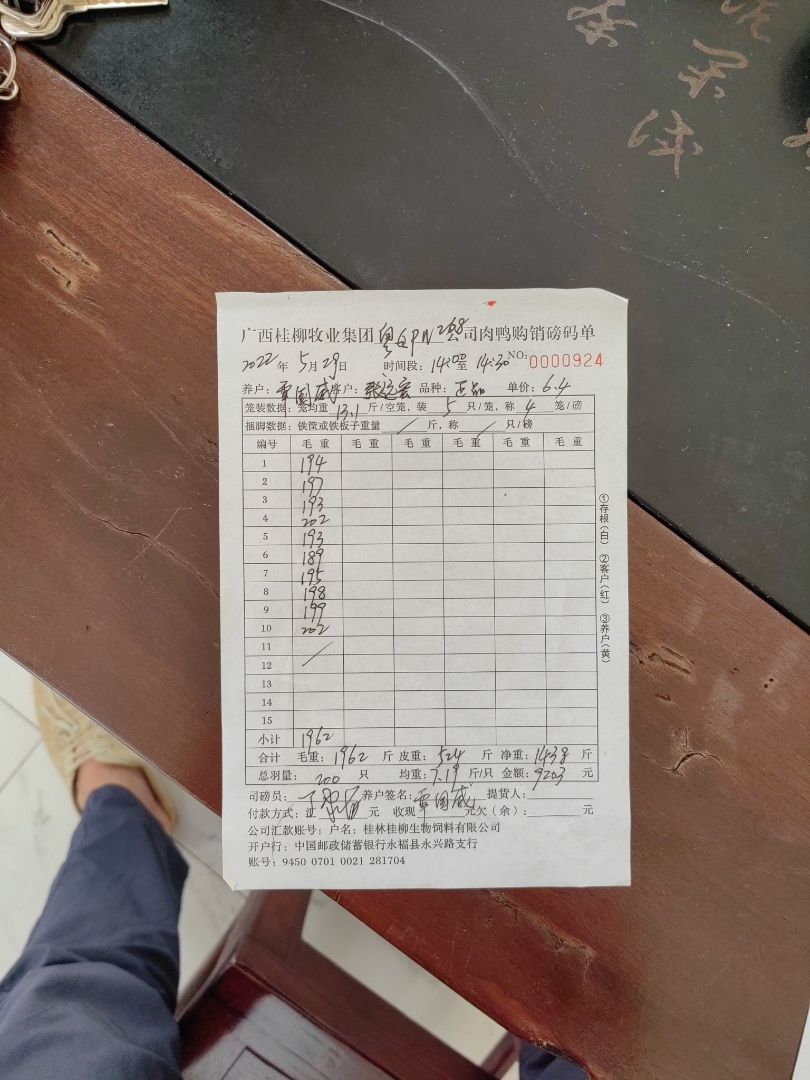 广西桂柳牧业集团粤QPN268公司肉鸭购销磅码单
2022年5月29日 时间段：14:00至14:30 NO：0000924
养户：覃国威 客户：张运宏 品种：正品 单价：6.4
笼装数据：笼均重13.1斤/空笼，装5只/笼，称4笼/磅
捆脚数据：铁筐或铁板子重量/斤，称/只/磅
编号 毛重 毛重 毛重 毛重 毛重 毛重
1 194
2 197
3 193
4 202
5 193
6 189
7 195
8 198
9 199
10 202
11
12
13
14
15
小计 1962
合计 毛重：1962斤 皮重：524斤 净重：1438斤
总羽量：200只 均重：7.19斤/只 金额：9203元
司磅员： 养户签名：覃国威 提货人：
付款方式：汇 元 收现 元欠（余）： 元
公司汇款账号：户名：桂林桂柳生物饲料有限公司
开户行：中国邮政储蓄银行永福县永兴路支行
账号：9450 0701 0021 281704
①存根（白） ②客户（红） ③养户（黄）